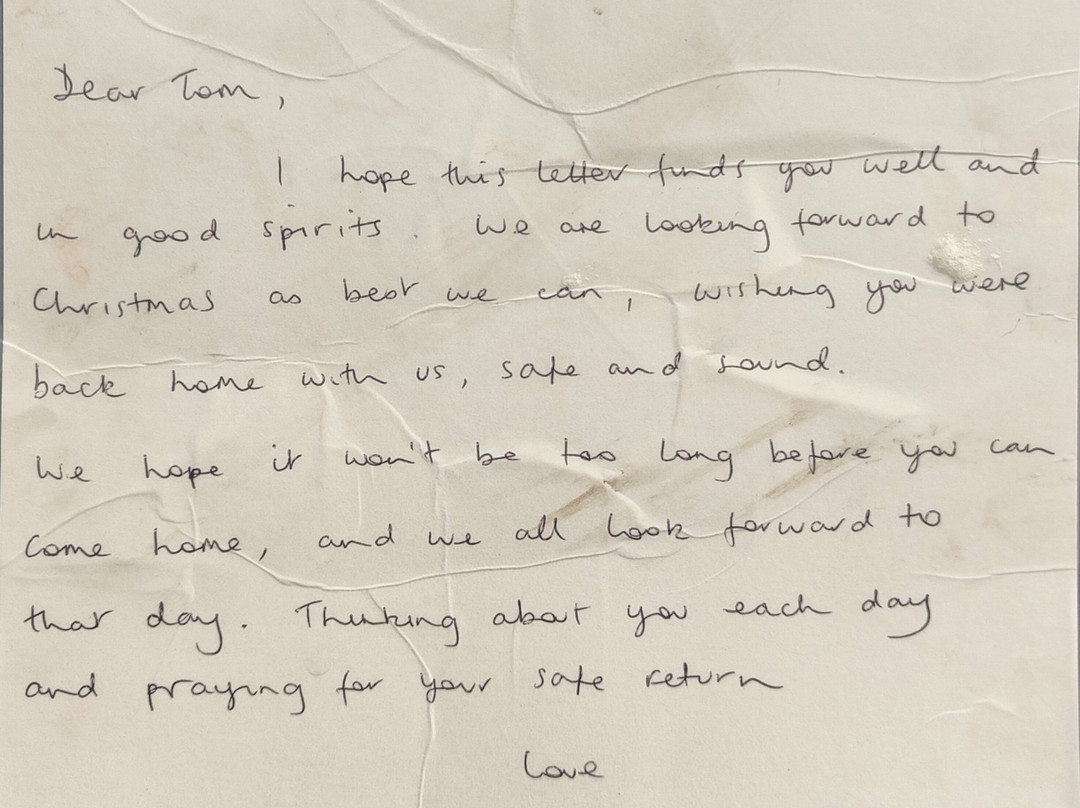 Dear Tom,
I hope this letter finds you well and
in good spirits. We are looking forward to
Christmas as best we can, wishing you were
back home with us, safe and sound.
We hope it won't be too long before you can
come home, and we all look forward to
that day. Thinking about you each day
and praying for your safe return
Love